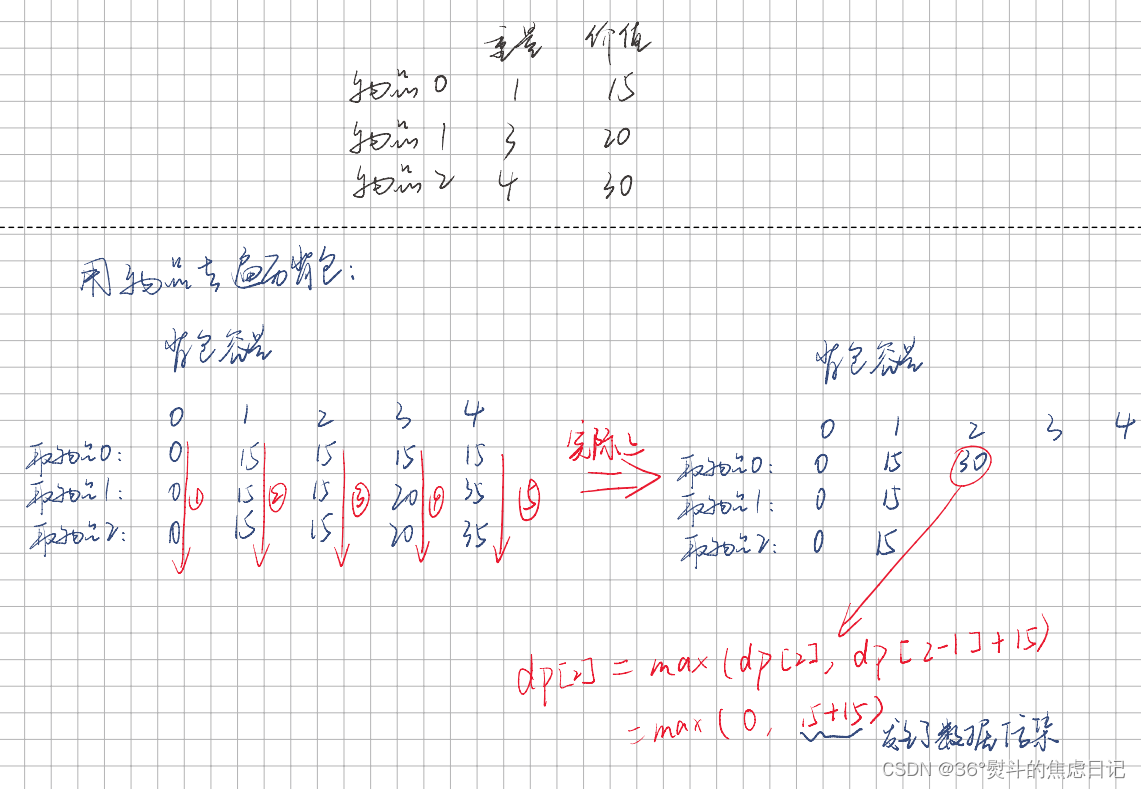 重量 价值
物品0 1 15
物品1 3 20
物品2 4 30
用物品去遍历背包:
背包容量
0 1 2 3 4
取物品0: 0 15 15 15 15
取物品1: 0 15 15 20 35
取物品2: 0 15 15 20 35
① ② ③ ④ ⑤
实际上
背包容量
0 1 2 3 4
取物品0: 0 15 30
取物品1: 0 15
取物品2: 0 15
dp[2] = max(dp[2], dp[2-1]+15)
=max(0, 15+15) 发生了数据污染
CSDN @36°熨斗的焦虑日记